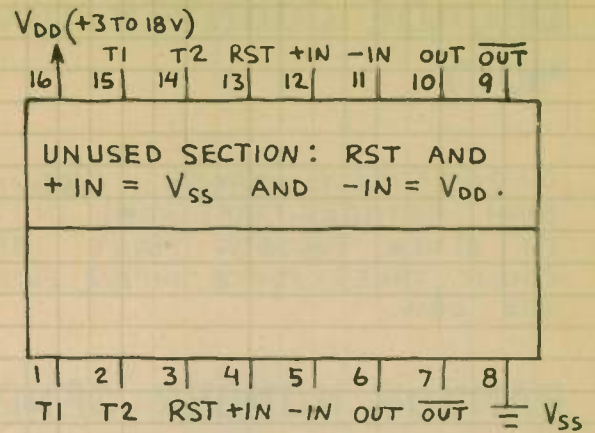 VDD (+3 TO 18V)
T1 T2 RST +IN -IN OUT O̅U̅T̅
16 15 14 13 12 11 10 9
UNUSED SECTION: RST AND
+IN = VSS AND -IN = VDD.
1 2 3 4 5 6 7 8
T1 T2 RST +IN -IN OUT O̅U̅T̅ VSS